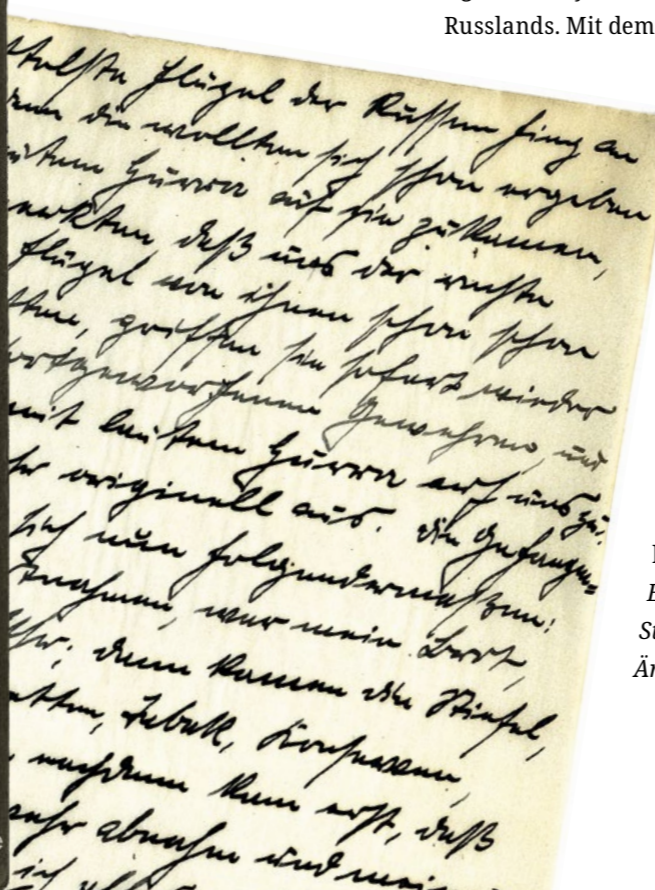 Russlands. Mit dem
Flügel der Russen fing an
denn die wollten sich schon ergeben
Hurra auf sie zukamen,
merkten daß uns der rechte
Flügel von ihnen schon schon
griffen sie sofort wieder
fortgeworfenen Gewehren, und
mit lautem Hurra auf uns zu.
originell aus. Die Gefangen-
sich nun folgendermaßen:
war mein Brot,
dann kamen die Stiefel,
Tabak, Konserven,
nachdem kam erst, daß
abnahm und
ich